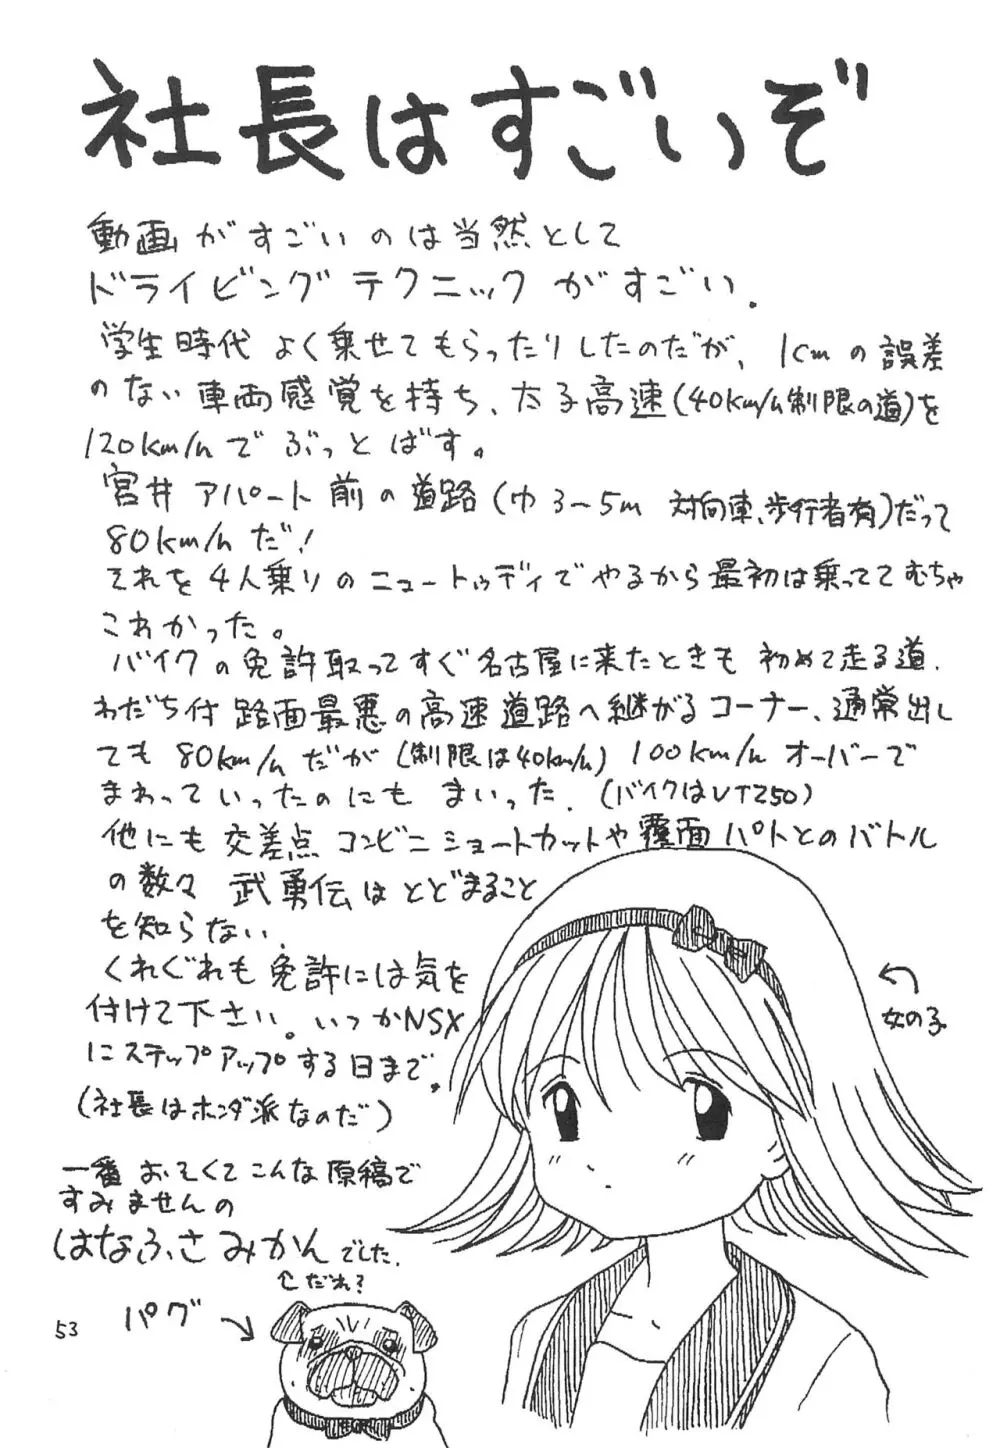 社長はすごいぞ
動画がすごいのは当然として
ドライビングテクニックがすごい.
学生時代 よく乗せてもらったりしたのだが、1cmの誤差
のない車両感覚を持ち、太子高速(40km/h制限の道)を
120km/hでぶっとばす。
宮井アパート前の道路(巾3~5m 対向車、歩行者有)だって
80km/hだ!
それを4人乗りのニュートゥディでやるから最初は乗っててむちゃ
こわかった。
バイクの免許取ってすぐ名古屋に来たときも 初めて走る道.
わだち付 路面最悪の高速道路へ継がるコーナー、通常出し
ても80km/hだが(制限は40km/h)100km/hオーバーで
まわっていったのにもまいった.(バイクはVTZ50)
他にも交差点コンビニショートカットや覆面パトとのバトル
の数々 武勇伝はとどまること
を知らない.
くれぐれも免許には気を
付けて下さい。いつかNSX
にステップアップする日まで.
(社長はホンダ派なのだ)
女の子
一番おそくてこんな原稿で
すみませんの
はなふさみかんでした.
だれ?
パグ
53